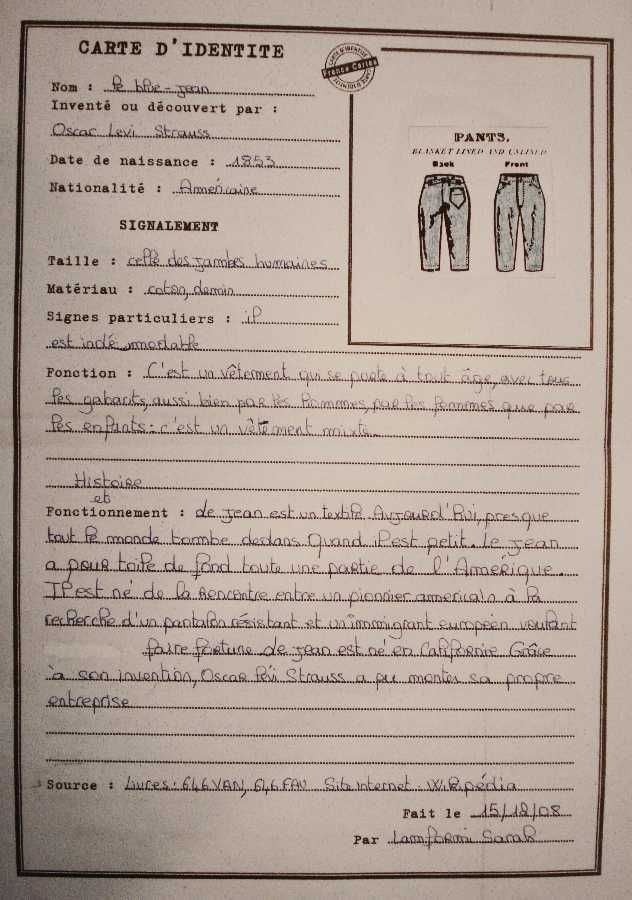 CARTE D'IDENTITE
CARTE D'IDENTITE
France Cartes
Nom : le blue-jean
Inventé ou découvert par :
Oscar Levi Strauss
Date de naissance : 1853
Nationalité : Américaine
PANTS.
BLANKET LINED AND UNLINED
Back Front
SIGNALEMENT
Taille : celle des jambes humaines
Matériau : coton, demin
Signes particuliers : il
est indémodable
Fonction : C'est un vêtement qui se porte à tout âge, avec tous
les gabarits, aussi bien par les hommes, par les femmes que par
les enfants : c'est un vêtement mixte.
Histoire
et
Fonctionnement : de jean est un textile Aujourd'hui, presque
tout le monde tombe dedans Quand il est petit. Le jean
a pour toile de fond toute une partie de l'Amérique.
Il est né de la rencontre entre un pionnier americain à la
recherche d'un pantalon résistant et un immigrant européen voulant
faire fortune de jean est né en Californie Grâce
à son invention, Oscar lévi Strauss a pu monter sa propre
entreprise
Source : Livres : 646 VAN, 646 FAU Site internet : Wikipédia
Fait le 15/12/08
Par Lamformi Sarah